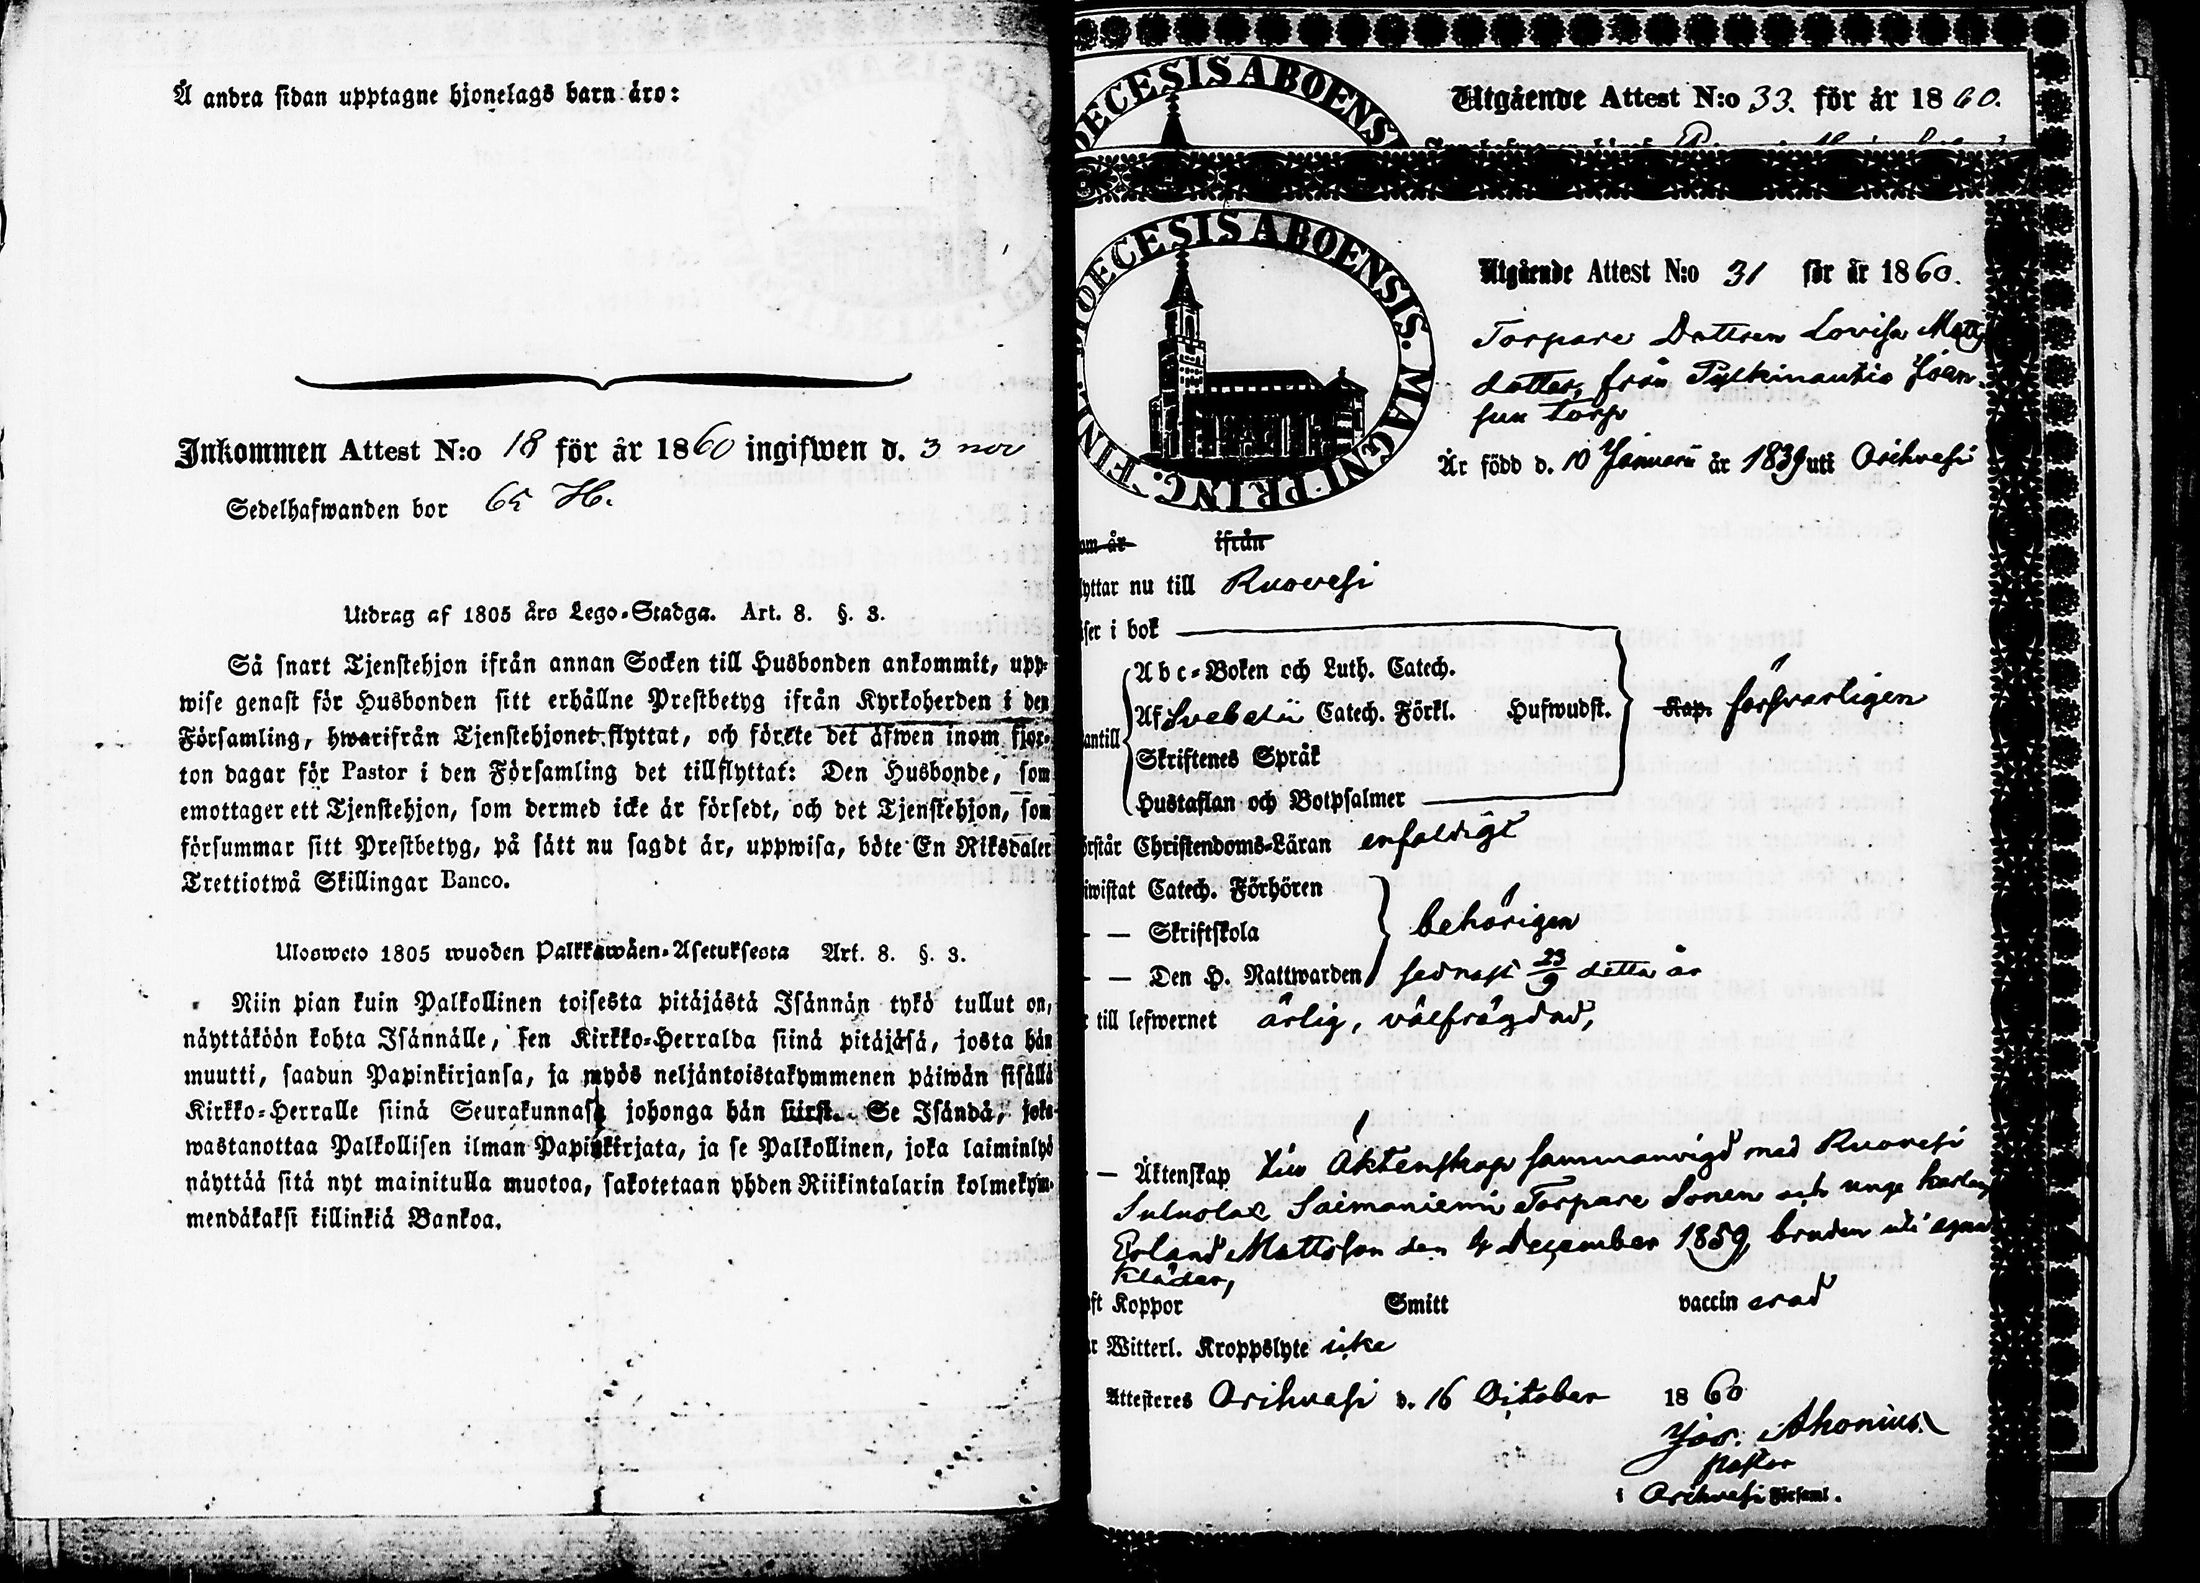 Å andra sidan upptagne hjonelags barn äro:
Inkommen Attest N:o 18 för år 1860 ingifwen d. 3 nov
Sedelhafwanden bor 65 H.
Utdrag af 1805 års Lego-Stadga. Art. 8. §. 3.
Så snart Tjenstehjon ifrån annan Socken till Husbonden ankommit, upp-
wise genast för Husbonden sitt erhållne Prestbetyg ifrån Kyrkoherden i den
Församling, hwarifrån Tjenstehjonet flyttat, och förete det äfwen inom fjor-
ton dagar för Pastor i den Församling det tillflyttat: Den Husbonde, som
emottager ett Tjenstehjon, som dermed icke är försedt, och det Tjenstehjon, som
försummar sitt Prestbetyg, på sätt nu sagdt är, uppwisa, böte En Riksdaler
Trettiotwå Skillingar Banco.
Ulosweto 1805 wuoden Palkkawäen-Asetuksesta Art. 8. §. 3.
Niin pian kuin Palkollinen toisesta pitäjästä Isännän tykö tullut on,
näyttäköön kohta Isännälle, sen Kirkko-Herralda siinä pitäjäsä, josta hän
muutti, saadun Papinkirjansa, ja myös neljäntoistakymmenen päiwän sisällä
Kirkko-Herralle siinä Seurakunnasa johonga hän siirst. Se Isändä, joka
wastanottaa Palkollisen ilman Papinkirjata, ja se Palkollinen, joka laiminlyö
näyttää sitä nyt mainitulla muotoa, sakotetaan yhden Riikintalarin kolmekym-
mendäkaksi killinkiä Bankoa.
DIOECESIS ABOENSIS
Utgående Attest N:o 33. för år 1860.
DIOECESIS ABOENSIS. MAGNI PRINC. FINL.
Utgående Attest N:o 31 för år 1860.
Torpare Dottren Lovisa Matts
dotter, från Pylkinautio Joan-
sun torp
Är född d. 10 Januarii år 1839 uti Orihvesi
om år ifrån
lyttar nu till Ruovesi
äser i bok
Abc-Boken och Luth. Catech.
Af Svebelii Catech. Förkl. Hufwudst. Kap. försvarligen
antill
Skriftenes Språk
Hustaflan och Botpsalmer
örstår Christendoms-Läran enfaldigt
iwistat Catech. Förhören
— — Skriftskola behörigen
— — Den H. Nattwarden sednast 23/9 detta år
r till lefwernet ärlig, välfrägdad,
— Äktenskap til Äktenskap sammanvigd med Ruovesi
Saimaniemi Torpare Sonen och unge karlen
Erland Mattsson den 4 december 1859, bruden uti egna
kläder,
ft Koppor Smitt vaccin erad
r Witterl. Kroppslyte icke
Attesteres Orihvesi d. 16 October 1860
Jos. Ahonius
Pastor
i Orihvesi Församl.